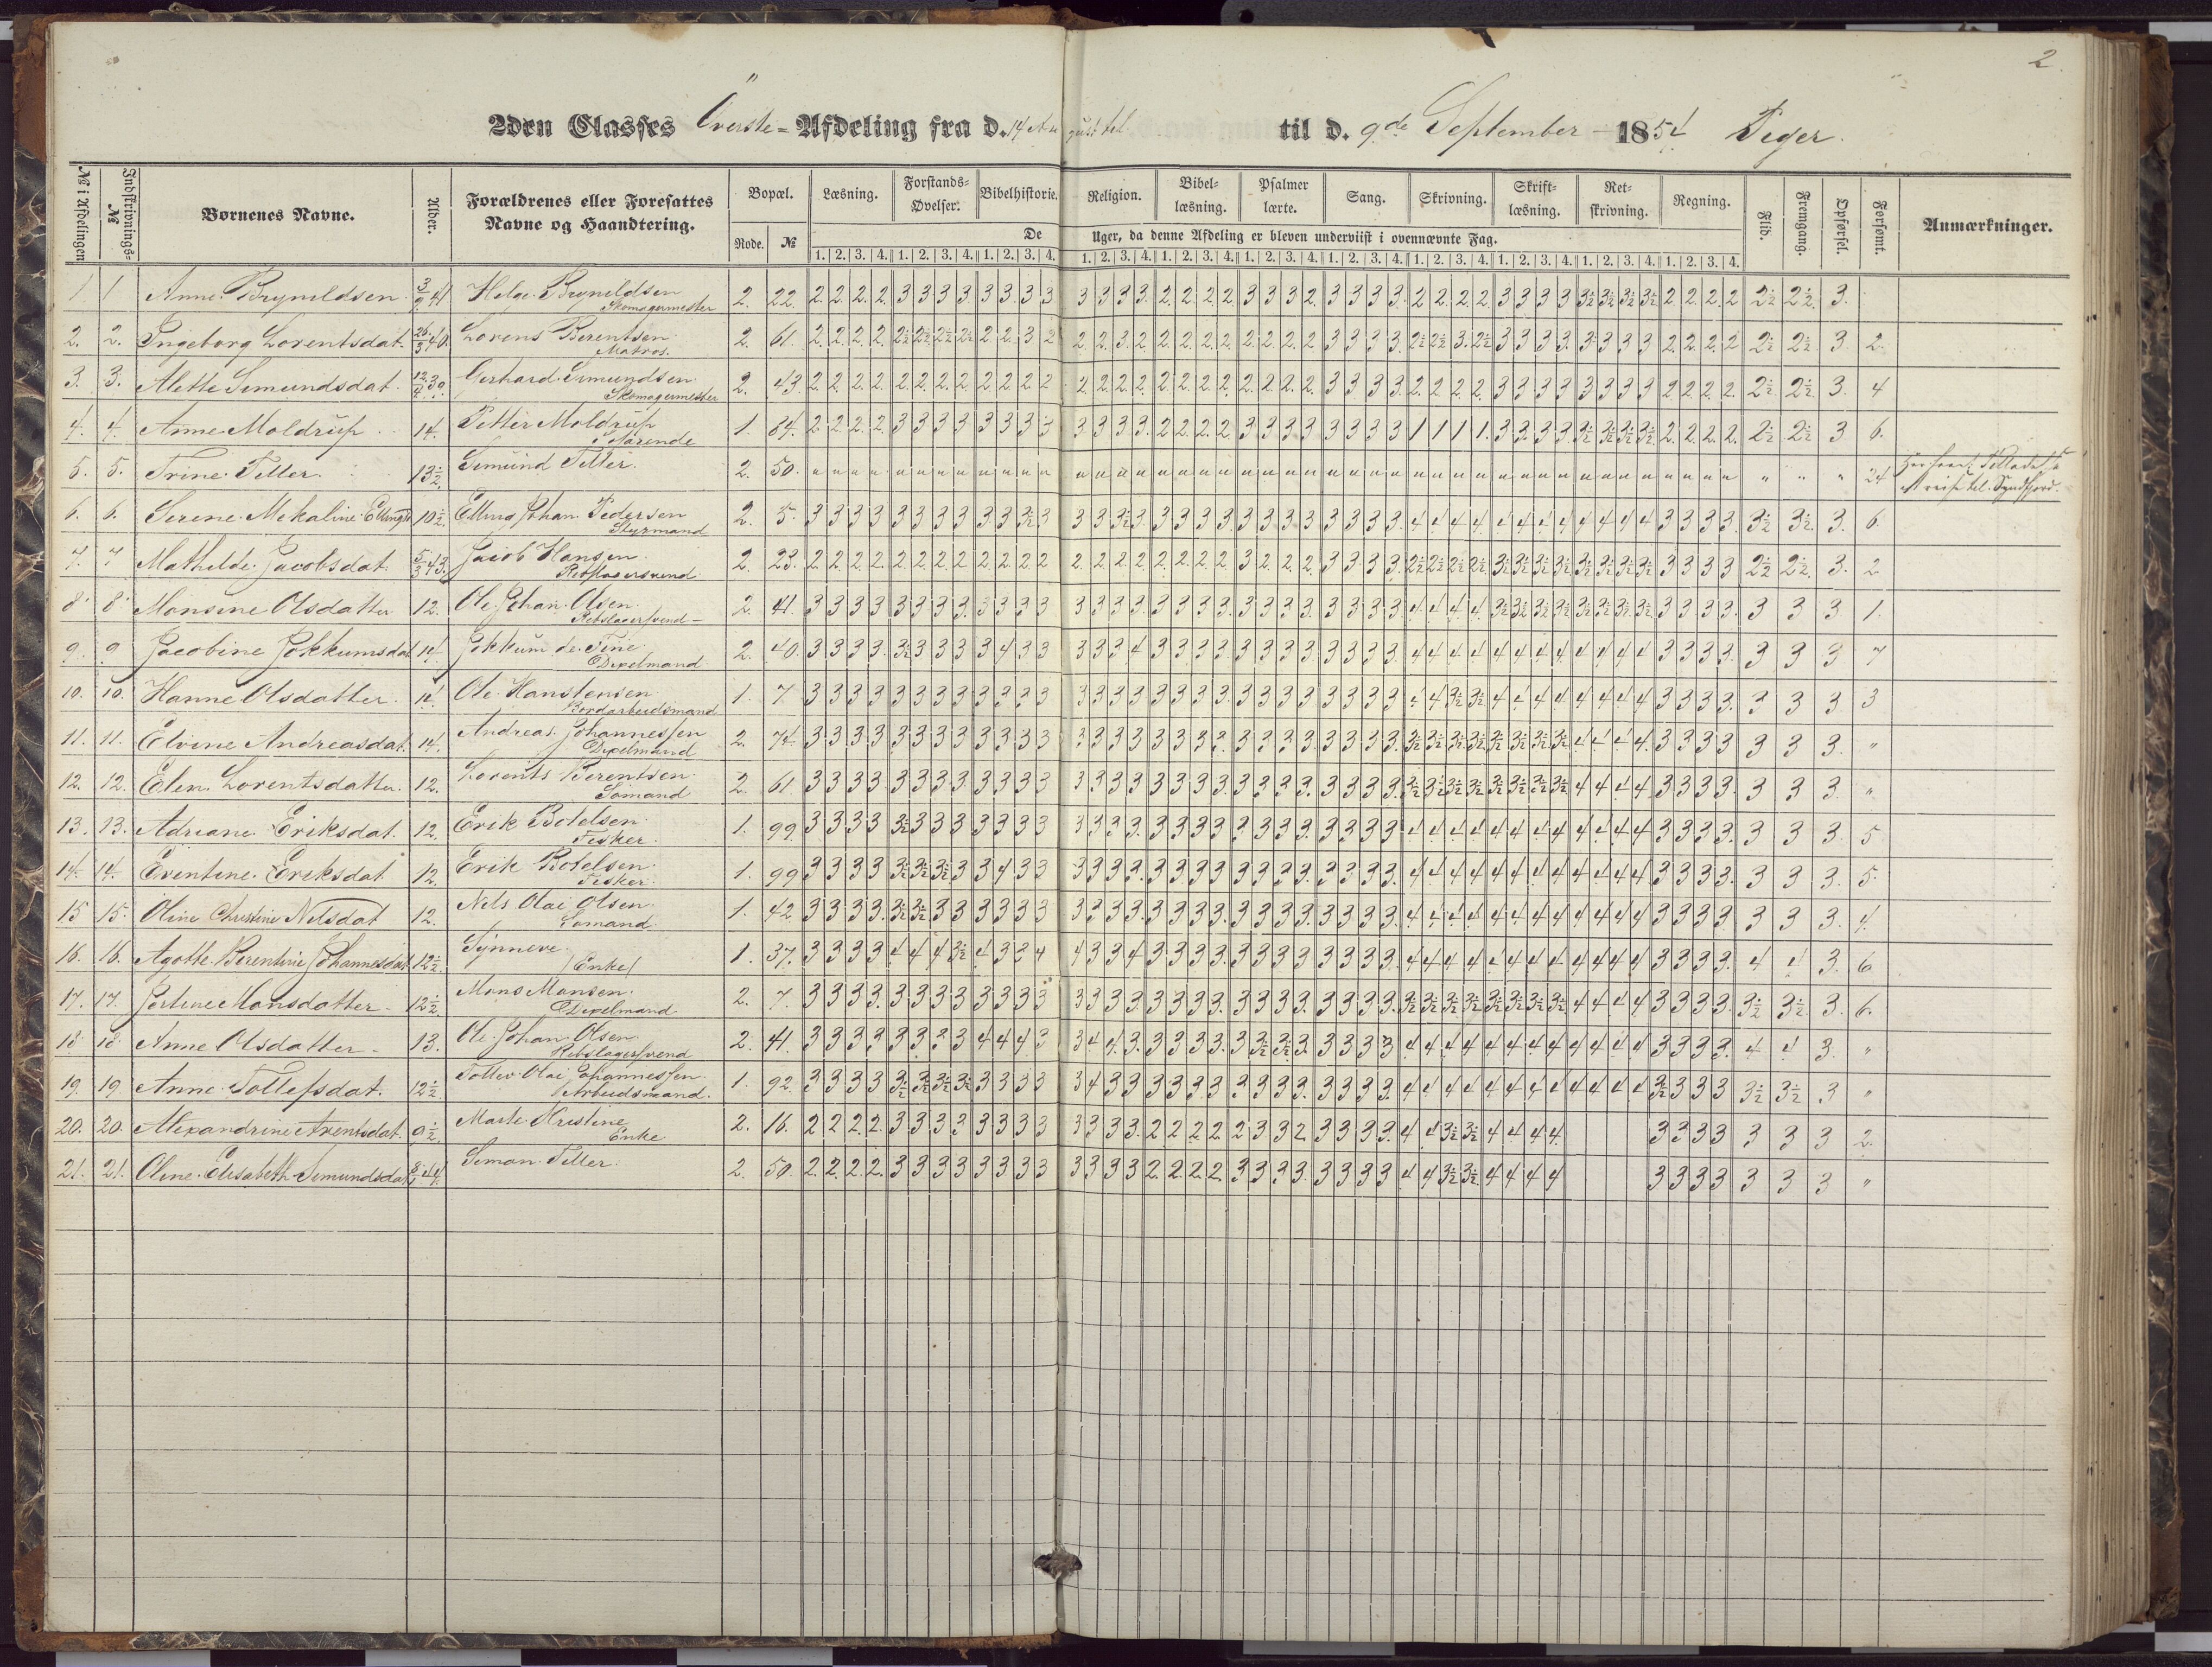 2
2den Classes Överste = Afdeling fra d. 14 August til til d. 9de September 1854 Piger.
№ i Afdelingen Indskrivnings-№ Børnenes Navne. Alder. Forældrenes eller Foresattes Navne og Haandtering. Bopæl. Læsning. Forstands-Øvelser. Bibelhistorie. Religion. Bibel-læsning. Psalmer lærte. Sang. Skrivning. Skrift-læsning. Ret-skrivning. Regning. Flid. Fremgang. Opførsel. Forsømt. Anmærkninger.
Rode. № De Uger, da denne Afdeling er bleven underviist i ovennævnte Fag.
1. 2. 3. 4. 1. 2. 3. 4. 1. 2. 3. 4. 1. 2. 3. 4. 1. 2. 3. 4. 1. 2. 3. 4. 1. 2. 3. 4. 1. 2. 3. 4. 1. 2. 3. 4. 1. 2. 3. 4. 1. 2. 3. 4.
1. 1 Anne Bryneldsen 3/9 41 Helge Bryneldsen Skomagermester 2. 22. 2. 2. 2. 2. 3 3 3 3 3 3. 3 3 3 3 3 3. 2. 2. 2. 2 3 3 3 2 3 3 3 3. 2. 2. 2. 2 3 3 3 3 3½ 3½ 3½ 3½ 2. 2. 2. 2 2½ 2½ 3.
2. 2. Ingeborg Lorentsdat. 26/3 40. Lorens Berentsen Matros. 2. 61. 2. 2. 2. 2. 2½ 2½ 2½ 2½ 2 2 3 2 2 2 3. 2 2. 2. 2. 2. 2. 2. 2. 2 3 3 3 3. 2½ 2½ 3. 2½ 3 3 3 3. 3 3 3 3 2. 2. 2. 2 2½ 2½ 3 2.
3. 3. Alette Simundsdat. Gerhard Simundsen Skomagermester 2. 43. 2. 2. 2. 2. 2. 2. 2. 2 2 2 2 2 2. 2. 2. 2 2. 2. 2. 2. 2. 2. 2. 2 3 3 3 3. 2. 2. 2. 2 3 3 3 3 3 3 3 3 2 2 2 2. 2½ 2½ 3. 4
4. 4. Anne Moldrup 14. Petter Moldrup Søfarende 1. 64. 2 2. 2. 2 3 3 3 3 3 3 3 3 3 3 3 3. 2 2. 2. 2 3 3 3 3 3 3 3 3 1 1 1 1. 3 3 3 3. 3½ 3½ 3½ 3½ 2. 2. 2. 2. 2½ 2½ 3 6.
5. 5. Trine Teller. 13½ Simund Teller. 2. 50. " " " " " " " " " " " " " " " " " " " " " " " " " " " " " " " " " " " " " " " " " " " " " " " 24
6. 6. Serene Mekaline Ellingsd 10½ Elling Johan Pedersen Styrmand 2. 5. 3 3 3 3 3 3 3 3 3 3 3½ 3 3 3 3½ 3 3 3 3 3 3 3 3 3 3 3 3 3. 4 4 4 4. 4 4 4 4 4 4 4 4 3 3 3 3. 3½ 3½ 3. 6.
7. 7 Mathilde Jacobsdat. 5/3 43. Jacob Hansen Rebslagersvend 2. 23. 2 2. 2. 2. 2. 2. 2. 2 2 2. 2 2 2. 2. 2. 2 2. 2. 2. 2. 3 2. 2. 2 3 3 3 3. 2½ 2½ 2½ 2½ 3½ 3½ 3½ 3½ 3½ 3½ 3½ 3½ 3 3 3 3 2½ 2½ 3. 2
8 8 Monsine Olsdatter 12. Ole Johan Olsen. Rebslagersvend 2. 41. 3 3 3 3 3 3 3 3. 3 3 3 3 3 3 3 3. 3 3 3 3. 3 3 3 3. 3 3 3 3. 4. 4 4 4. 3½ 3½ 3½ 3½ 3½ 3½ 3½ 3½ 3 3 3 3. 3 3 3 1.
9. 9 Jacobine Jokkumsdat 14. Jokkum de Fine 2. 40. 3 3 3 3. 3½ 3 3 3 3 4 3 3 3 3 3 4 3 3 3 3. 3 3 3 3. 3 3 3 3. 4 4 4 4 4 4 4 4 4 4 4 4 3 3 3 3. 3 3 3 7
10. 10. Hanne Olsdatter. Ole Hanstensen Bordarbeidsmand 1. 7 3 3 3 3 3 3 3 3 3 3 3 3 3 3 3 3 3 3 3 3 3 3 3 3 3 3 3 3 4 4 3½ 3½ 4 4 4 4 4 4 4 4 3 3 3 3. 3 3 3 3
11. 11. Elvine Andreasdat. 14. Andreas Johannessen 2. 74. 3 3 3 3 3 3 3 3 3 3 3 3 3 3 3 3 3 3 3 3 3 3 3 3 3 3 3 3. 3½ 3½ 3½ 3½ 3½ 3½ 3½ 3½ 4 4 4 4. 3 3 3 3 3 3 3. "
12. 12. Elen Lorentsdatter. 12. Lorents Berentsen Sömand 2. 61 3 3 3 3 3 3 3 3. 3 3 3 3 3 3 3 3 3 3 3 3 3 3 3 3. 3 3 3 3. 3½ 3½ 3½ 3½ 3½ 3½ 3½ 3½ 4 4 4 4. 3 3 3 3. 3 3 3. "
13. 13. Adriane Eriksdat. 12. Erik Botelsen Fisker. 1. 99. 3 3 3 3 3½ 3 3 3 3 3 3 3 3 3 3 3. 3 3 3 3 3 3 3 3. 3 3 3 3 4 4 4 4 4 4 4 4 4 4 4 4 3 3 3 3. 3 3 3. 5
14. 14. Eventine Eriksdat 12. Erik Botelsen Fisker. 1. 99 3 3 3 3 3½ 3½ 3½ 3 3 4 3 3 3 3 3 3. 3 3 3 3 3 3 3 3. 3 3 3 3. 4 4 4 4 4 4 4 4 4 4 4 4 3 3 3 3. 3 3 3. 5.
15 15. Oline Christine Nilsdat 12. Nils Olai Olsen. Sömand 1. 42 3 3 3 3. 3½ 3½ 3 3 3 3 3 3 3 3 3 3. 3 3 3 3. 3 3 3 3. 3 3 3 3. 4 4 4 4 4 4 4 4 4 4 4 4 3 3 3 3 3 3 3. 4.
16. 16. Agothe Berentine Johannesdat 12½ Synneve /Enke/ 1. 37. 3 3 3 3 4 4 4 3½ 4 3 3 4 4 3 3 4 3 3 3 3. 3 3 3 3. 3 3 3 3. 4 4 4 4 4 4 4 4 4 4 4 4 3 3 3 3. 4 4 3. 6
17. 17. Jertine Monsdatter 12½ Mons Monsen. 2. 7. 3 3 3 3. 3 3 3 3 3 3 3 3 3 3 3 3 3 3 3 3. 3 3 3 3 3 3 3 3. 3½ 3½ 3½ 3½ 3½ 3½ 3½ 3½ 4 4 4 4 3 3 3 3. 3½ 3½ 3. 6.
18 18 Anne Olsdatter 13. Ole Johan Olsen Rebslagersvend 2. 41. 3 3 3 3 3 3 3 3 4 4 4 3 3 4 4. 3. 3 3 3 3. 3 3½ 3½ 3. 3 3 3 3 4 4 4 4 4 4 4 4 4 4 4 4 3 3 3 3. 4 4 3. "
19. 19. Anne Tollefsdat. 12½ Tollev Olai Johannessen Arbeidsmand. 1. 92. 3 3 3 3 3½ 3½ 3½ 3½ 3 3 3 3 3 4 3 3 3 3 3 3 3 3 3 3. 3 3 3 3. 4 4 4 4 4 4 4 4 4 4 4 4 3½ 3 3 3 3½ 3½ 3 "
20. 20. Alexandrine Arentsdat. 9½ Marte Kristine Enke 2. 16. 2 2 2. 2. 3 3 3. 3 3 3 3 3 3 3 3 3. 2 2 2 2 2 3 3 2 3 3 3 3. 4 4 3½ 3½ 4 4 4 4. 3 3 3 3 3 3 3 2.
21. 21. Oline Elisabeth Simundsdat Siman Teller. 2. 50. 2. 2. 2. 2. 3 3 3 3 3 3 3 3 3 3 3 3 2. 2. 2. 2 3 3 3 3. 3 3 3 3 4 4 3½ 3½ 4 4 4 4 3 3 3 3 3 3 3 "